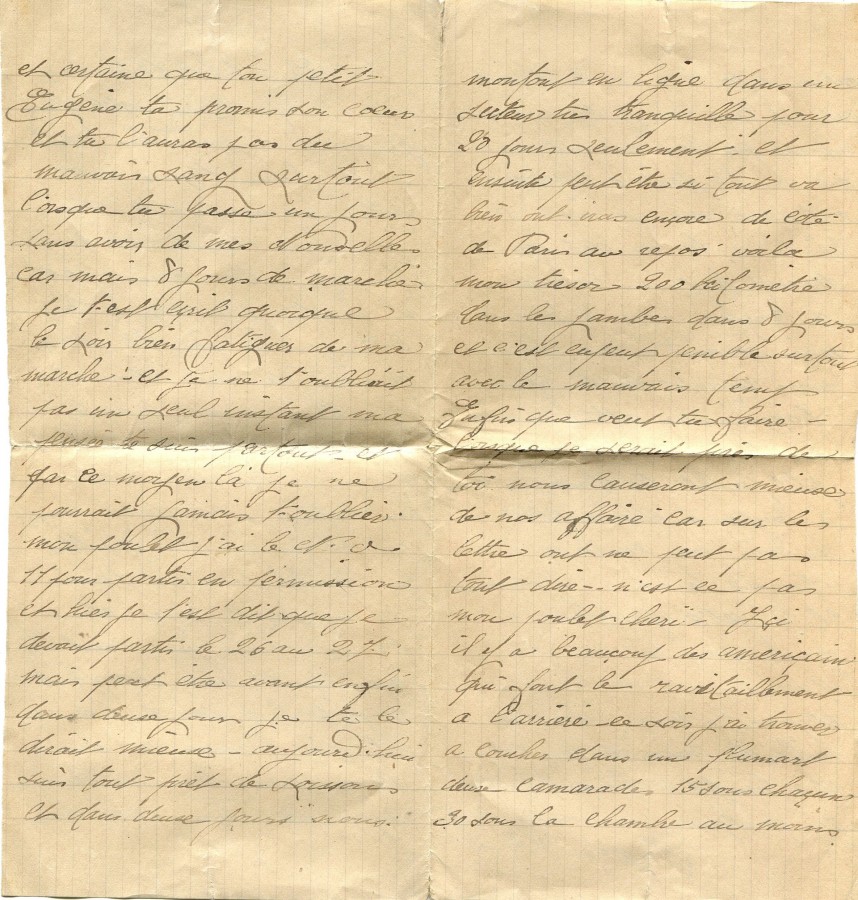 et certaine que ton petit
Eugène ta promis son coeur
et tu l'auras pas du
mauvais sang surtout
lorsque tu passe un jours
sans avoir de mes Nouvelles
car mais 8 jours de marche
je t'est ecrit quoique
le soir bien fatiguer de ma
marche et je ne t'oubliait
pas un seul instant ma
pensée te suis partout et
par ce moyen là je ne
pourrait jamais t'oublier
mon poulet j'ai le N° o
11 pour partir en permission
et hier je t'est dit que je
devait partir le 26 au 27
mais peut etre avant enfin
dans deuse jours je te le
dirait mieuse - aujourd'hui
suis tout prêt de Soissons
et dans deuse jours nous
montont en ligne dans un
secteur très tranquille pour
20 jours seulement et
ensuite peut être si tout va
bien ont iras encore de coté
de Paris au repos voila
mon trésor 200 kilometre
dans les jambes dans 8 jours
et c'est penible surtout
avec le mauvais temp
Enfin que veut tu faire -
lorsque je serait près de
toi nous causeront mieuse
de nos affaire car sur les
lettre ont ne peut pas
tout dire - n'est ce pas
mon poulet chéri - Ici
il y a beaucoup des americain
qui font le ravitaillement
a l'arrière - ce soir j'ai trouver
a coucher dans un plumart
deuse camarades 15 sous chaqun
30 sous la chambre au moins